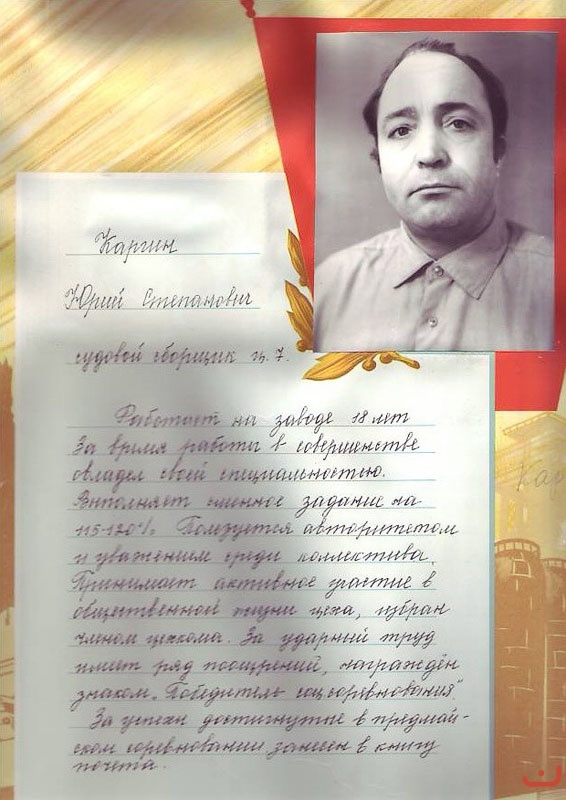 Каргин
Юрий Степанович
судовой сборщик ц. 7.
Работает на заводе 18 лет
За время работы в совершенстве
овладел своей специальностью.
Выполняет сменное задание на
115-120%. Пользуется авторитетом
и уважением среди коллектива.
Принимает активное участие в
общественной жизни цеха, избран
членом цехкома. За ударный труд
имеет ряд поощрений, награждён
знаком „Победитель соц.соревнования"
За успехи достигнутые в предмай-
ском соревновании занесен в книгу
почета.
Кар